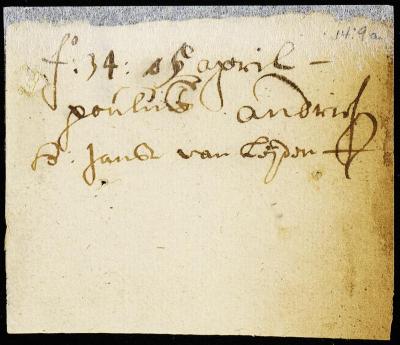 149a
fo: 34: april –
poulus andries
Jans van Leijden